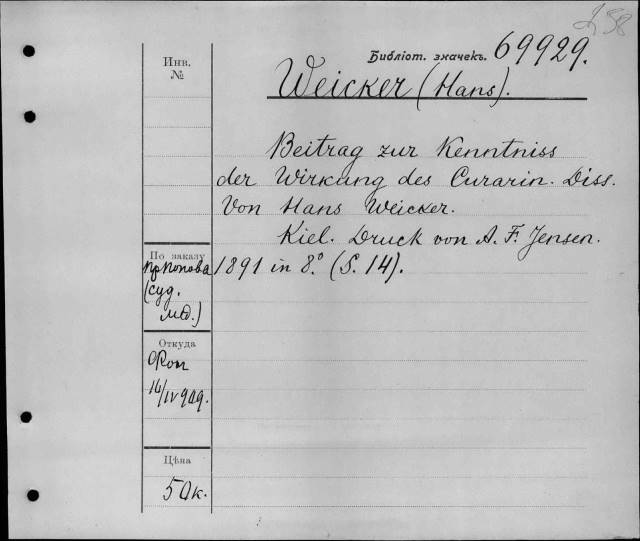 Библіот. значекъ. 69929.
Инв.
№
Weicker (Hans).
Beitrag zur Kenntniss
der Wirkung des Curarin. Diss.
Von Hans Weicker.
Kiel. Druck von A. F. Jensen.
1891 in 8.° (S. 14).
По заказу
Пр Попова
(суд.
мед.)
Откуда
16/IV 909.
Цѣна
50 к.